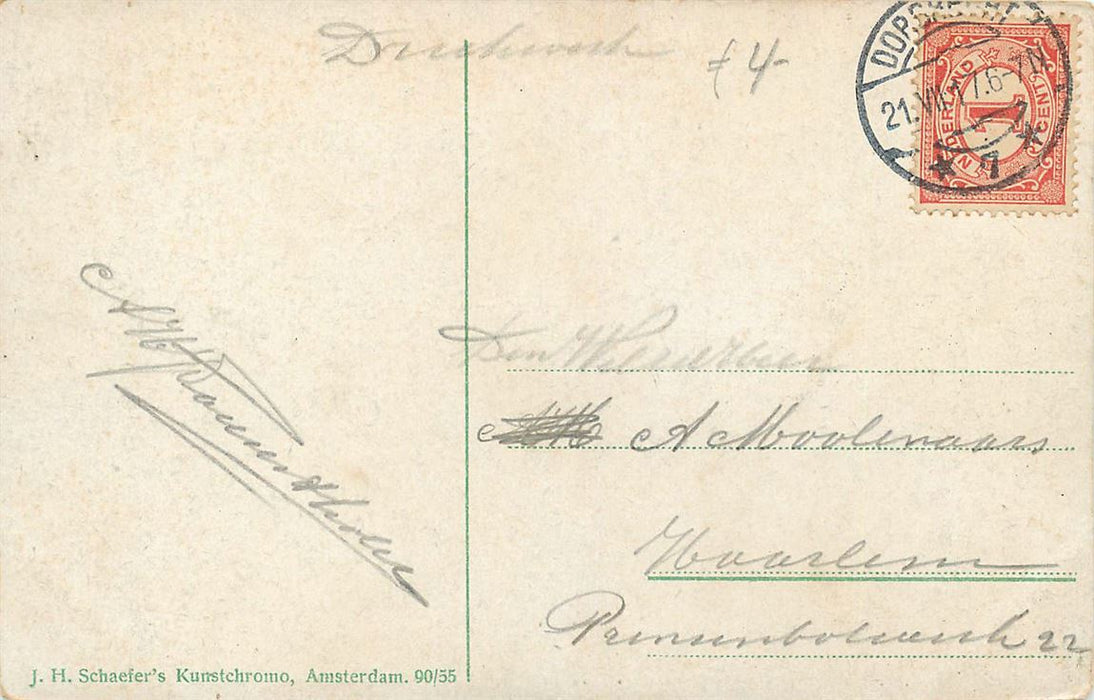 Drukwerk
f 4-
DORDRECHT
21.VII.17.6-7N
1
NEDERLAND
1
CENT
Den Weledelheer
A Moolenaars
Haarlem
Prinsenbolwerk 22
J. H. Schaefer's Kunstchromo, Amsterdam. 90/55